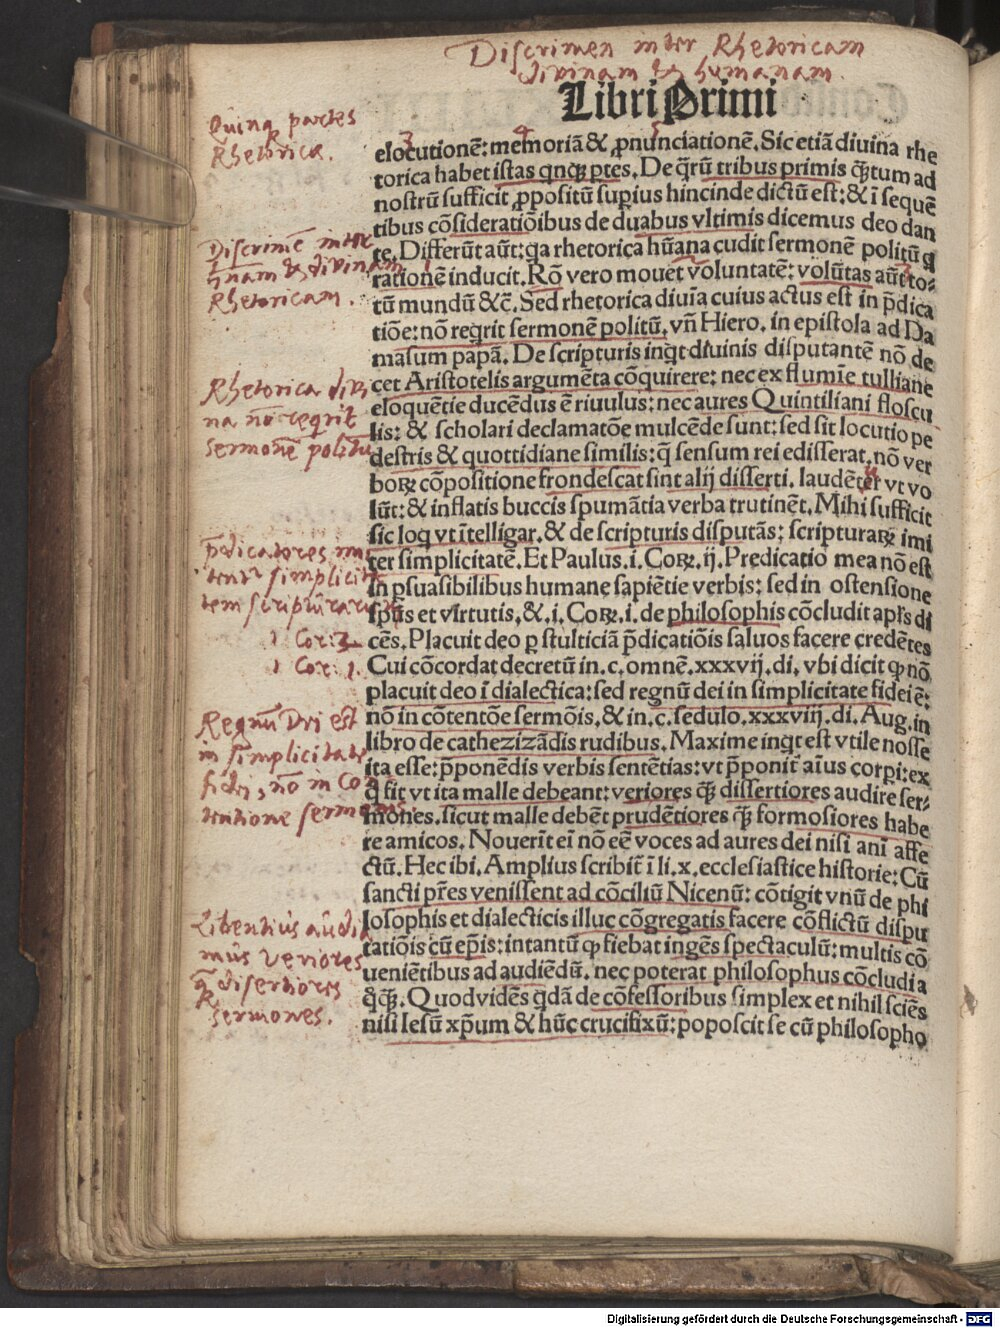 Discrimen inter Rhetoricam
divinam & humanam.
Libri Primi
Quinq partes
Rhetorica.
3 4 5
elocutionē: memoriā & ꝓnunciationē. Sic etiā diuina rhe
torica habet istas qnqꝫ ptes. De q̄rū tribus primis q̄tum ad
nostrū sufficit ꝓpositū supius hincinde dictū est: & ī sequē
tibus cōsideratiōibus de duabus vltimis dicemus deo dan
te. Differūt aūt: qa rhetorica hūana cudit sermonē politū q
rationē inducit. Rō vero mouet voluntatē: volūtas aūt to-
tū mundū &c̄. Sed rhetorica diuīa cuius actus est in p̄dica
tiōe: nō reqrit sermonē politū, vn̄ Hiero. in epistola ad Da
masum papā. De scripturis inqt diuinis disputantē nō de
cet Aristotelis argumēta cōquirere: nec ex flumīe tulliane
eloquētie ducēdus ē riuulus: nec aures Quintiliani floscu
lis: & scholari declamatōe mulcēde sunt: sed sit locutio pe
destris & quottidiane similis: q̄ sensum rei edisserat, nō ver
boꝝ cōpositione frondescat sint alij disserti, laudētur vt vo
lūt: & inflatis buccis spumātia verba trutinēt. Mihi sufficit
sic loq vt ītelligar, & de scripturis disputās: scripturaꝝ imi
ter simplicitatē. Et Paulus. i. Coꝝ. ij. Predicatio mea nō est
in ꝑsuasibilibus humane sapiētie verbis: sed in ostensione
spūs et virtutis, &. i. Coꝝ. i. de philosophis cōcludit apl's di
cēs. Placuit deo ꝑ stulticiā p̄dicatiōis saluos facere credētes
Cui cōcordat decretū in. c. omnē. xxxvij. di, vbi dicit ꝙ nō
placuit deo ī dialectica: sed regnū dei in simplicitate fidei ē:
nō in cōtentōe sermōis, & in. c. sedulo. xxxviij. di. Aug. in
libro de cathezizādis rudibus. Maxime inqt est vtile nosse
ita esse: p̄ponēdis verbis sentētias: vt p̄ponit' aīus corpi: ex
q̊ fit vt ita malle debeant: veriores q̄ꝫ dissertiores audire ser-
mones, sicut malle debēt prudētiores q̄ꝫ formosiores habe
re amicos. Nouerīt eī nō eē voces ad aures dei nisi anī affe
ctū. Hec ibi. Amplius scribit' ī li. x. ecclesiastice historie: Cū
sancti pr̄es venissent ad cōciliū Nicenū: cōtigit vnū de phi
losophis et dialecticis illuc cōgregatis facere cōflictū dispu
tatiōis cū ep̄is: intantū ꝙ fiebat ingēs spectaculū: multis cō
ueniētibus ad audiēdū, nec poterat philosophus cōcludi a
q̊q̄ꝫ. Quod vidēs qdā de cōfessoribus simplex et nihil sciēs
nisi Iesū xp̄um & hūc crucifixū: poposcit se cū philosopho
Discrimē inter
hūanam & divinam
Rhetoricam.
Rhetorica divi
na nō reqrit
sermonē politū
p̄dicatores imi
tent' simplicita
tem scripturarum
1 Cor: 2
1 Cor: 1.
Regnū Dei est
in simplicitate
fidei, nō in con
tentione sermonis.
Libentius audia
mus veriores
q̄ disertiores
sermones.
Digitalisierung gefördert durch die Deutsche Forschungsgemeinschaft - DFG